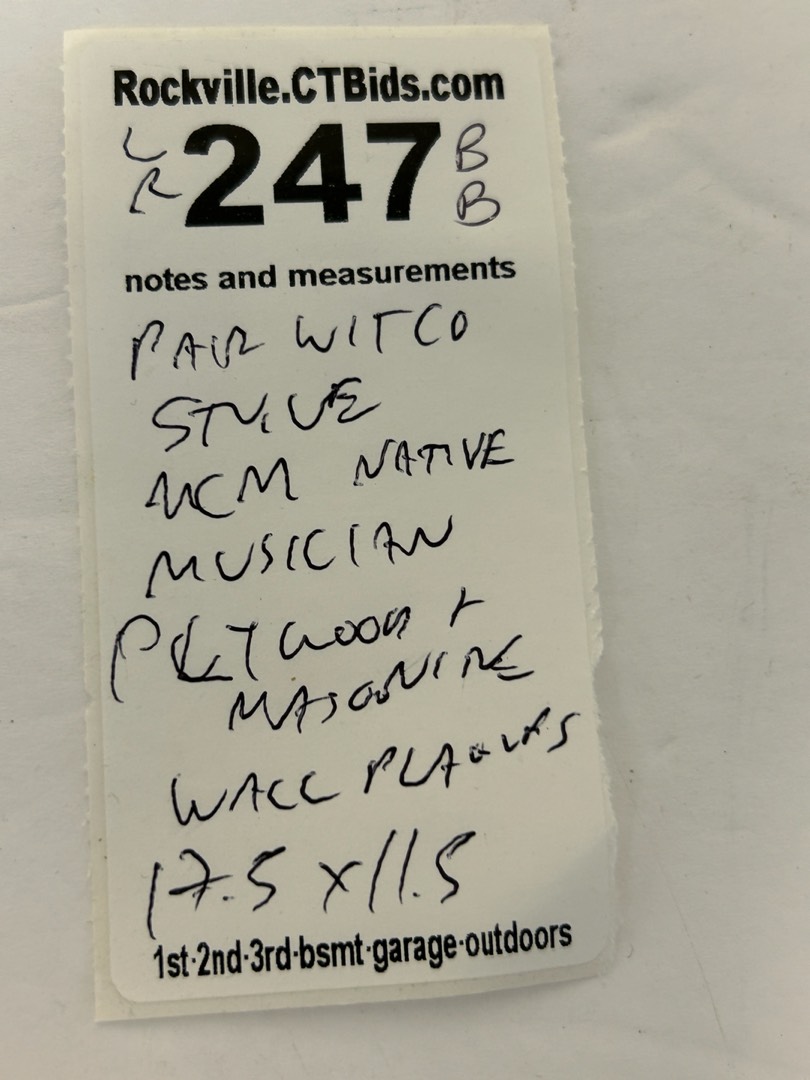 Rockville.CTBids.com
L 247 B
R B
notes and measurements
PAIR WITCO
STYLE
MCM NATIVE
MUSICIAN
PLYWOOD +
MASONITE
WALL PLAQUES
17.5 x 11.5
1st·2nd·3rd·bsmt·garage·outdoors